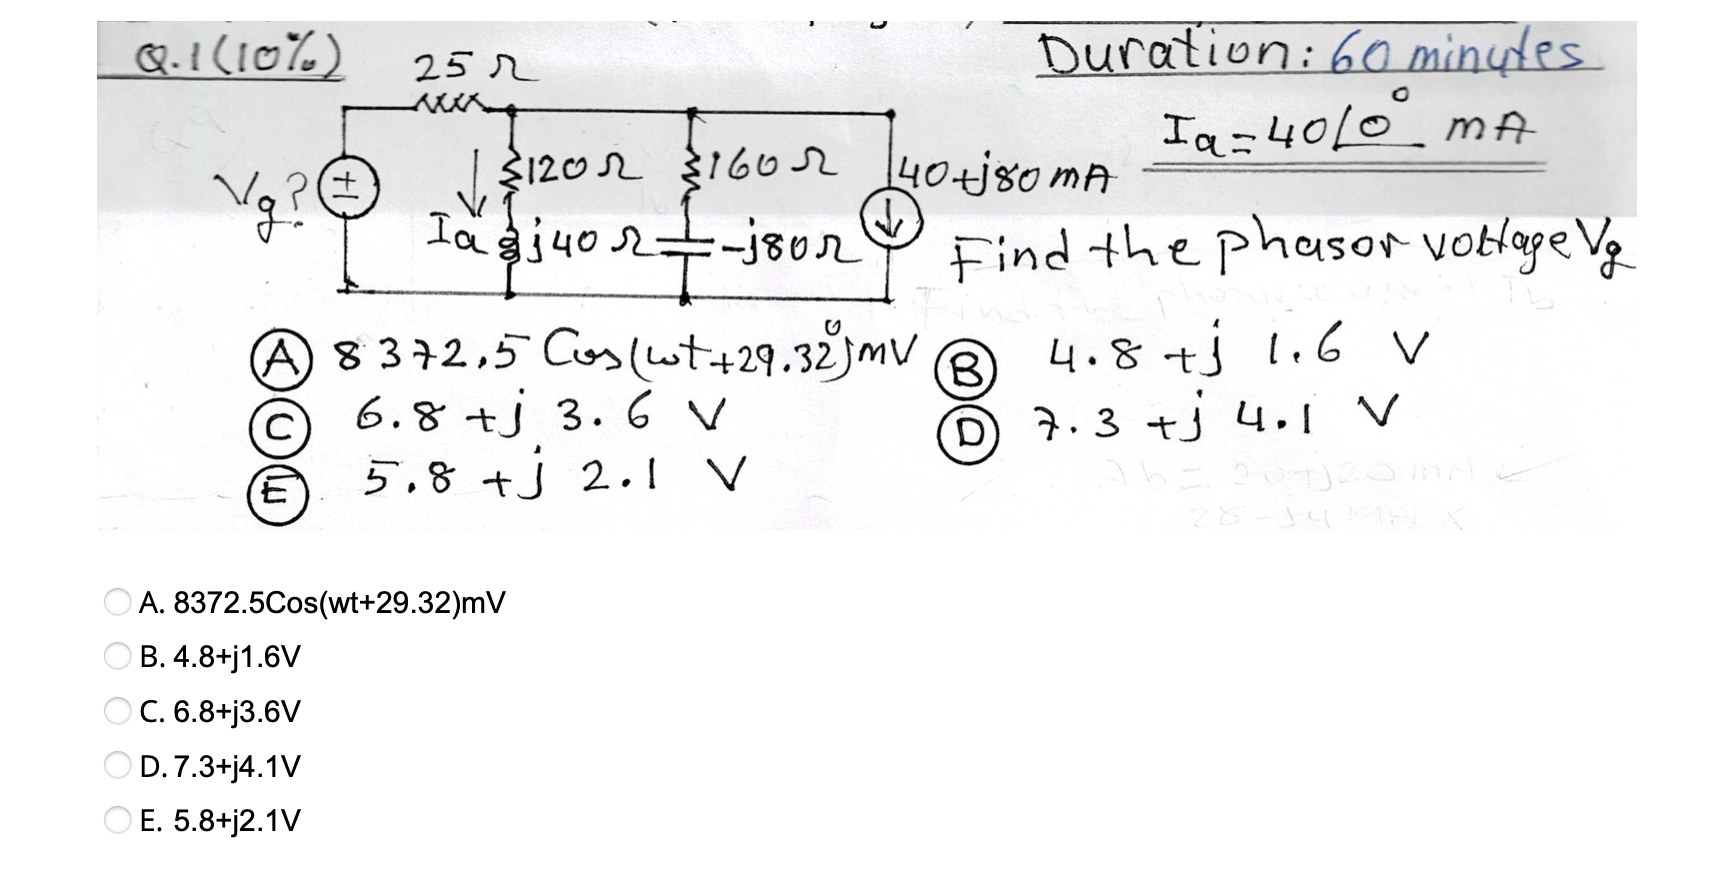 Q.1(10%)
Duration: 60 minutes
25 Ω
Ia = 40∠0° mA
Vg?
+
-
120 Ω
160 Ω
40+j80 mA
Ia
j40 Ω
-j80 Ω
Find the phasor voltage Vg
A 8372,5 Cos(ωt+29.32°)mV
B 4.8 +j 1.6 V
C 6.8 +j 3.6 V
D 7.3 +j 4.1 V
E 5.8 +j 2.1 V
A. 8372.5Cos(wt+29.32)mV
B. 4.8+j1.6V
C. 6.8+j3.6V
D. 7.3+j4.1V
E. 5.8+j2.1V